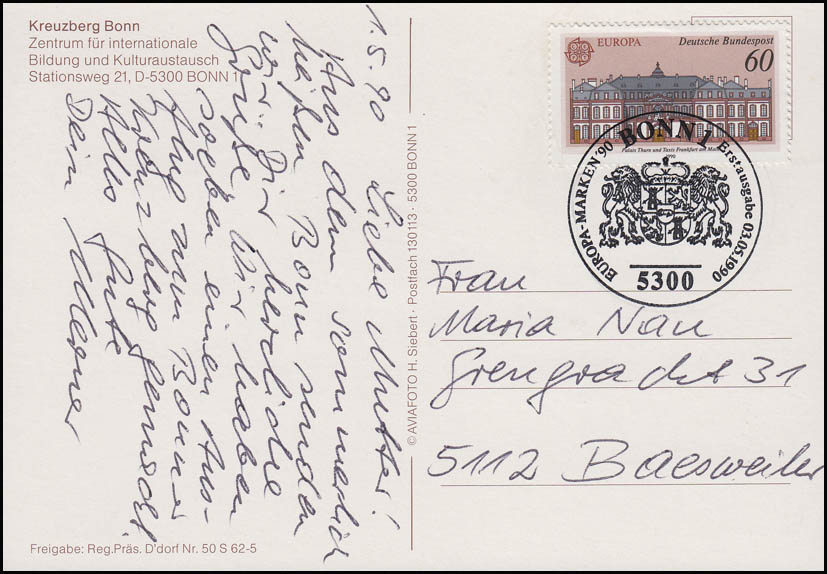 Kreuzberg Bonn
Zentrum für internationale
Bildung und Kulturaustausch
Stationsweg 21, D-5300 BONN 1
1.5.90
Liebe Mutter!
Aus dem sommerlich
heißen Bonn senden
wir Dir herzliche
Grüße. Wir haben
soeben einen Aus-
flug zum Bonner
Kreuzberg gemacht.
Alles Gute
Dein Werner
Freigabe: Reg.Präs. D'dorf Nr. 50 S 62-5
© AVIAFOTO H. Siebert · Postfach 130113 · 5300 BONN 1
EUROPA
Deutsche Bundespost
60
Palais Thurn und Taxis Frankfurt am Main
1990
BONN 1
EUROPA-MARKEN '90
Erstausgabe 03.05.1990
5300
Frau
Maria Nau
Grengracht 31
5112 Baesweiler